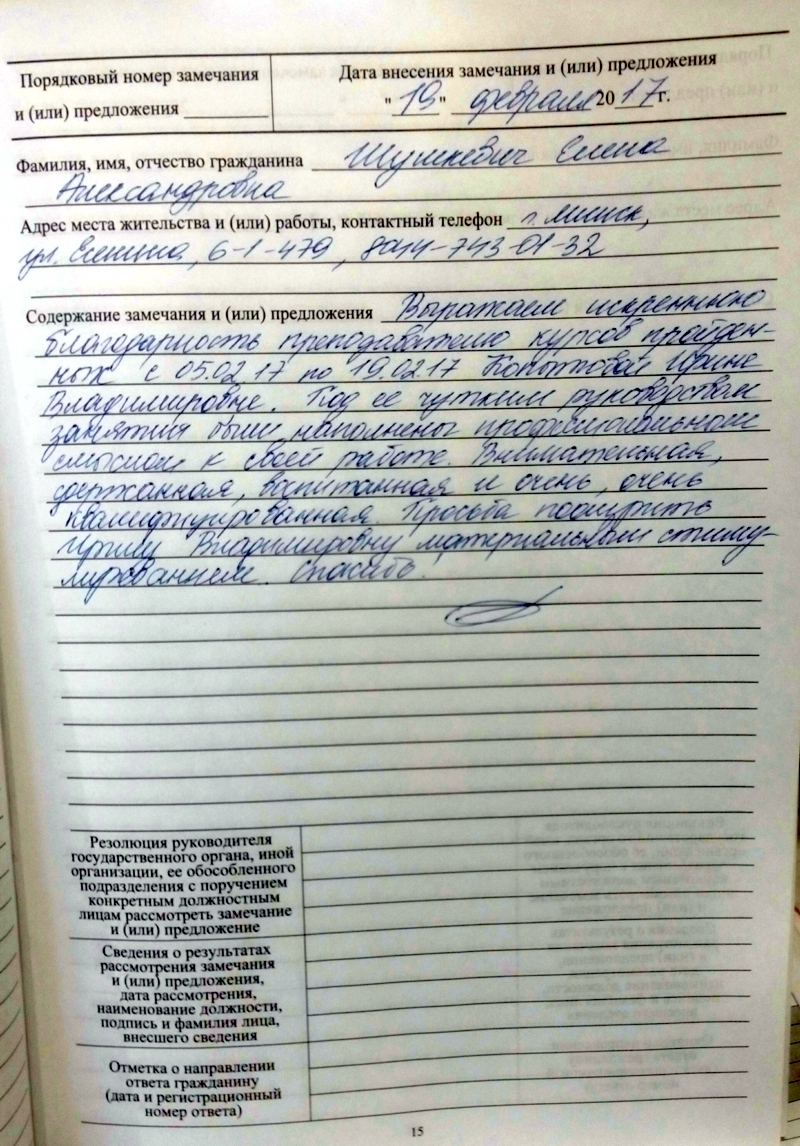 Порядковый номер замечания
и (или) предложения
Дата внесения замечания и (или) предложения
"19" февраля 2017г.
Фамилия, имя, отчество гражданина Шушкевич Елена
Александровна
Адрес места жительства и (или) работы, контактный телефон г. Минск,
ул. Есенина, 6-1-479, 8044-743-01-32
Содержание замечания и (или) предложения Выражаем искреннюю
благодарность преподавателю курсов пройден-
ных с 05.02.17 по 19.02.17 Ирине
Владимировне. Под ее чутким руководством
занятия были наполнены профессиональным
смыслом к своей работе. Внимательная,
сдержанная, воспитанная и очень, очень
квалифицированная. Просьба поощрить
Ирину Владимировну материальным стиму-
лированием. Спасибо.
Резолюция руководителя
государственного органа, иной
организации, ее обособленного
подразделения с поручением
конкретным должностным
лицам рассмотреть замечание
и (или) предложение
Сведения о результатах
рассмотрения замечания
и (или) предложения,
дата рассмотрения,
наименование должности,
подпись и фамилия лица,
внесшего сведения
Отметка о направлении
ответа гражданину
(дата и регистрационный
номер ответа)
15